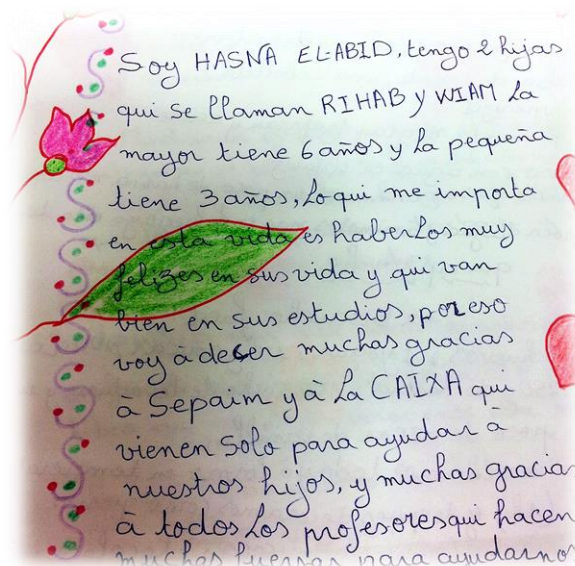 Soy HASNA EL-ABID, tengo 2 hijas
qui se llaman RIHAB y WIAM La
mayor tiene 6 años y La pequeña
tiene 3 años, Lo qui me importa
en esta vida es haberLos muy
felizes en sus vida y qui van
bien en sus estudios, por eso
voy à decer muchas gracias
à Sepaim y à La CAIXA qui
vienen Solo para ayudar à
nuestros hijos, y muchas gracia
à todos Los profesores qui hacen
muchas fuersas para ayudarnos